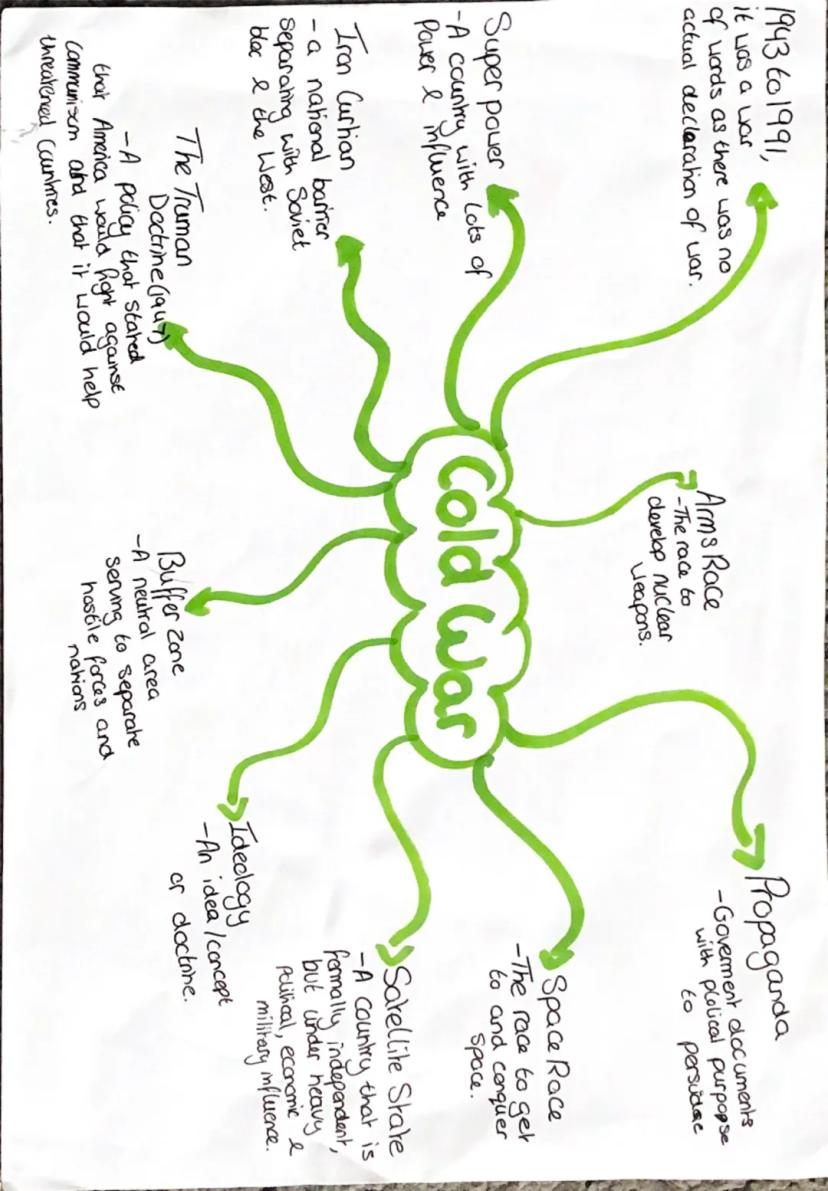 1943 to 1991,
it was a war
of words as there was no
actual declaration of war.
Arms Race
-The race to
develop nuclear
weapons.
Propaganda
-Government documents
with plolical purpopse
to persudae
Super power
-A country with lots of
Power & influence
Iron Curtian
- a national barrier
separating with Soviet
bloc & the West.
The Truman
Doctrine (1947)
-A policy that stated
that America would fight against
communison and that it would help
threatened Countries.
Cold War
Buffer zone
-A neutral area
serving to separate
hostile forces and
nations
Ideology
-An idea/concept
or doctrine.
Satellite State
-A country that is
formally independent,
but under heavy
political, economic &
military influence.
Space Race
-The race to get
to and conquer
space.